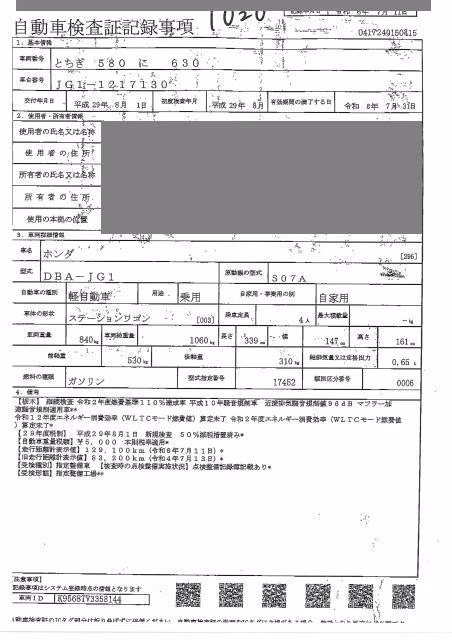 1020
自動車検査証記録事項
令和 6年 7月 11日
0417240150415
1. 基本情報
車両番号 とちぎ 580 に 630
車台番号 JG1-1217130
交付年月日 平成 29年 8月 1日 初度検査年月 平成 29年 8月 有効期間の満了する日 令和 8年 7月 31日
2. 使用者・所有者情報
使用者の氏名又は名称
使用者の住所
所有者の氏名又は名称
所有者の住所
使用の本拠の位置
3. 車両詳細情報
車名 ホンダ [296]
型式 DBA-JG1 原動機の型式 S07A
自動車の種別 軽自動車 用途 乗用 自家用・事業用の別 自家用
車体の形状 ステーションワゴン [003] 乗車定員 4人 最大積載量 -kg
車両重量 840kg 車両総重量 1060kg 長さ 339cm 幅 147cm 高さ 161cm
前軸重 530kg 後軸重 310kg 総排気量又は定格出力 0.65L
燃料の種類 ガソリン 型式指定番号 17452 類別区分番号 0006
4. 備考
【栃木】 継続検査 令和2年度燃費基準110%達成車 平成10年騒音規制車 近接排気騒音規制値96dB マフラー加
速騒音規制適用車**
令和12年度エネルギー消費効率(WLTCモード燃費値)算定未了 令和2年度エネルギー消費効率(WLTCモード燃費値
)算定未了*
【29年度税制】 平成29年8月1日 新規検査 50%減税措置済み*
【自動車重量税額】¥5,000 本則税率適用*
【走行距離計表示値】129,100km(令和6年7月11日)*
【旧走行距離計表示値】83,200km(令和4年7月13日)*
【受検種別】指定整備車 【検査時の点検整備実施状況】点検整備記録簿記載あり*
【受検形態】指定整備工場**
[注意事項]
記録事項はシステム登録時点の情報となります
車両ID K9568773358144